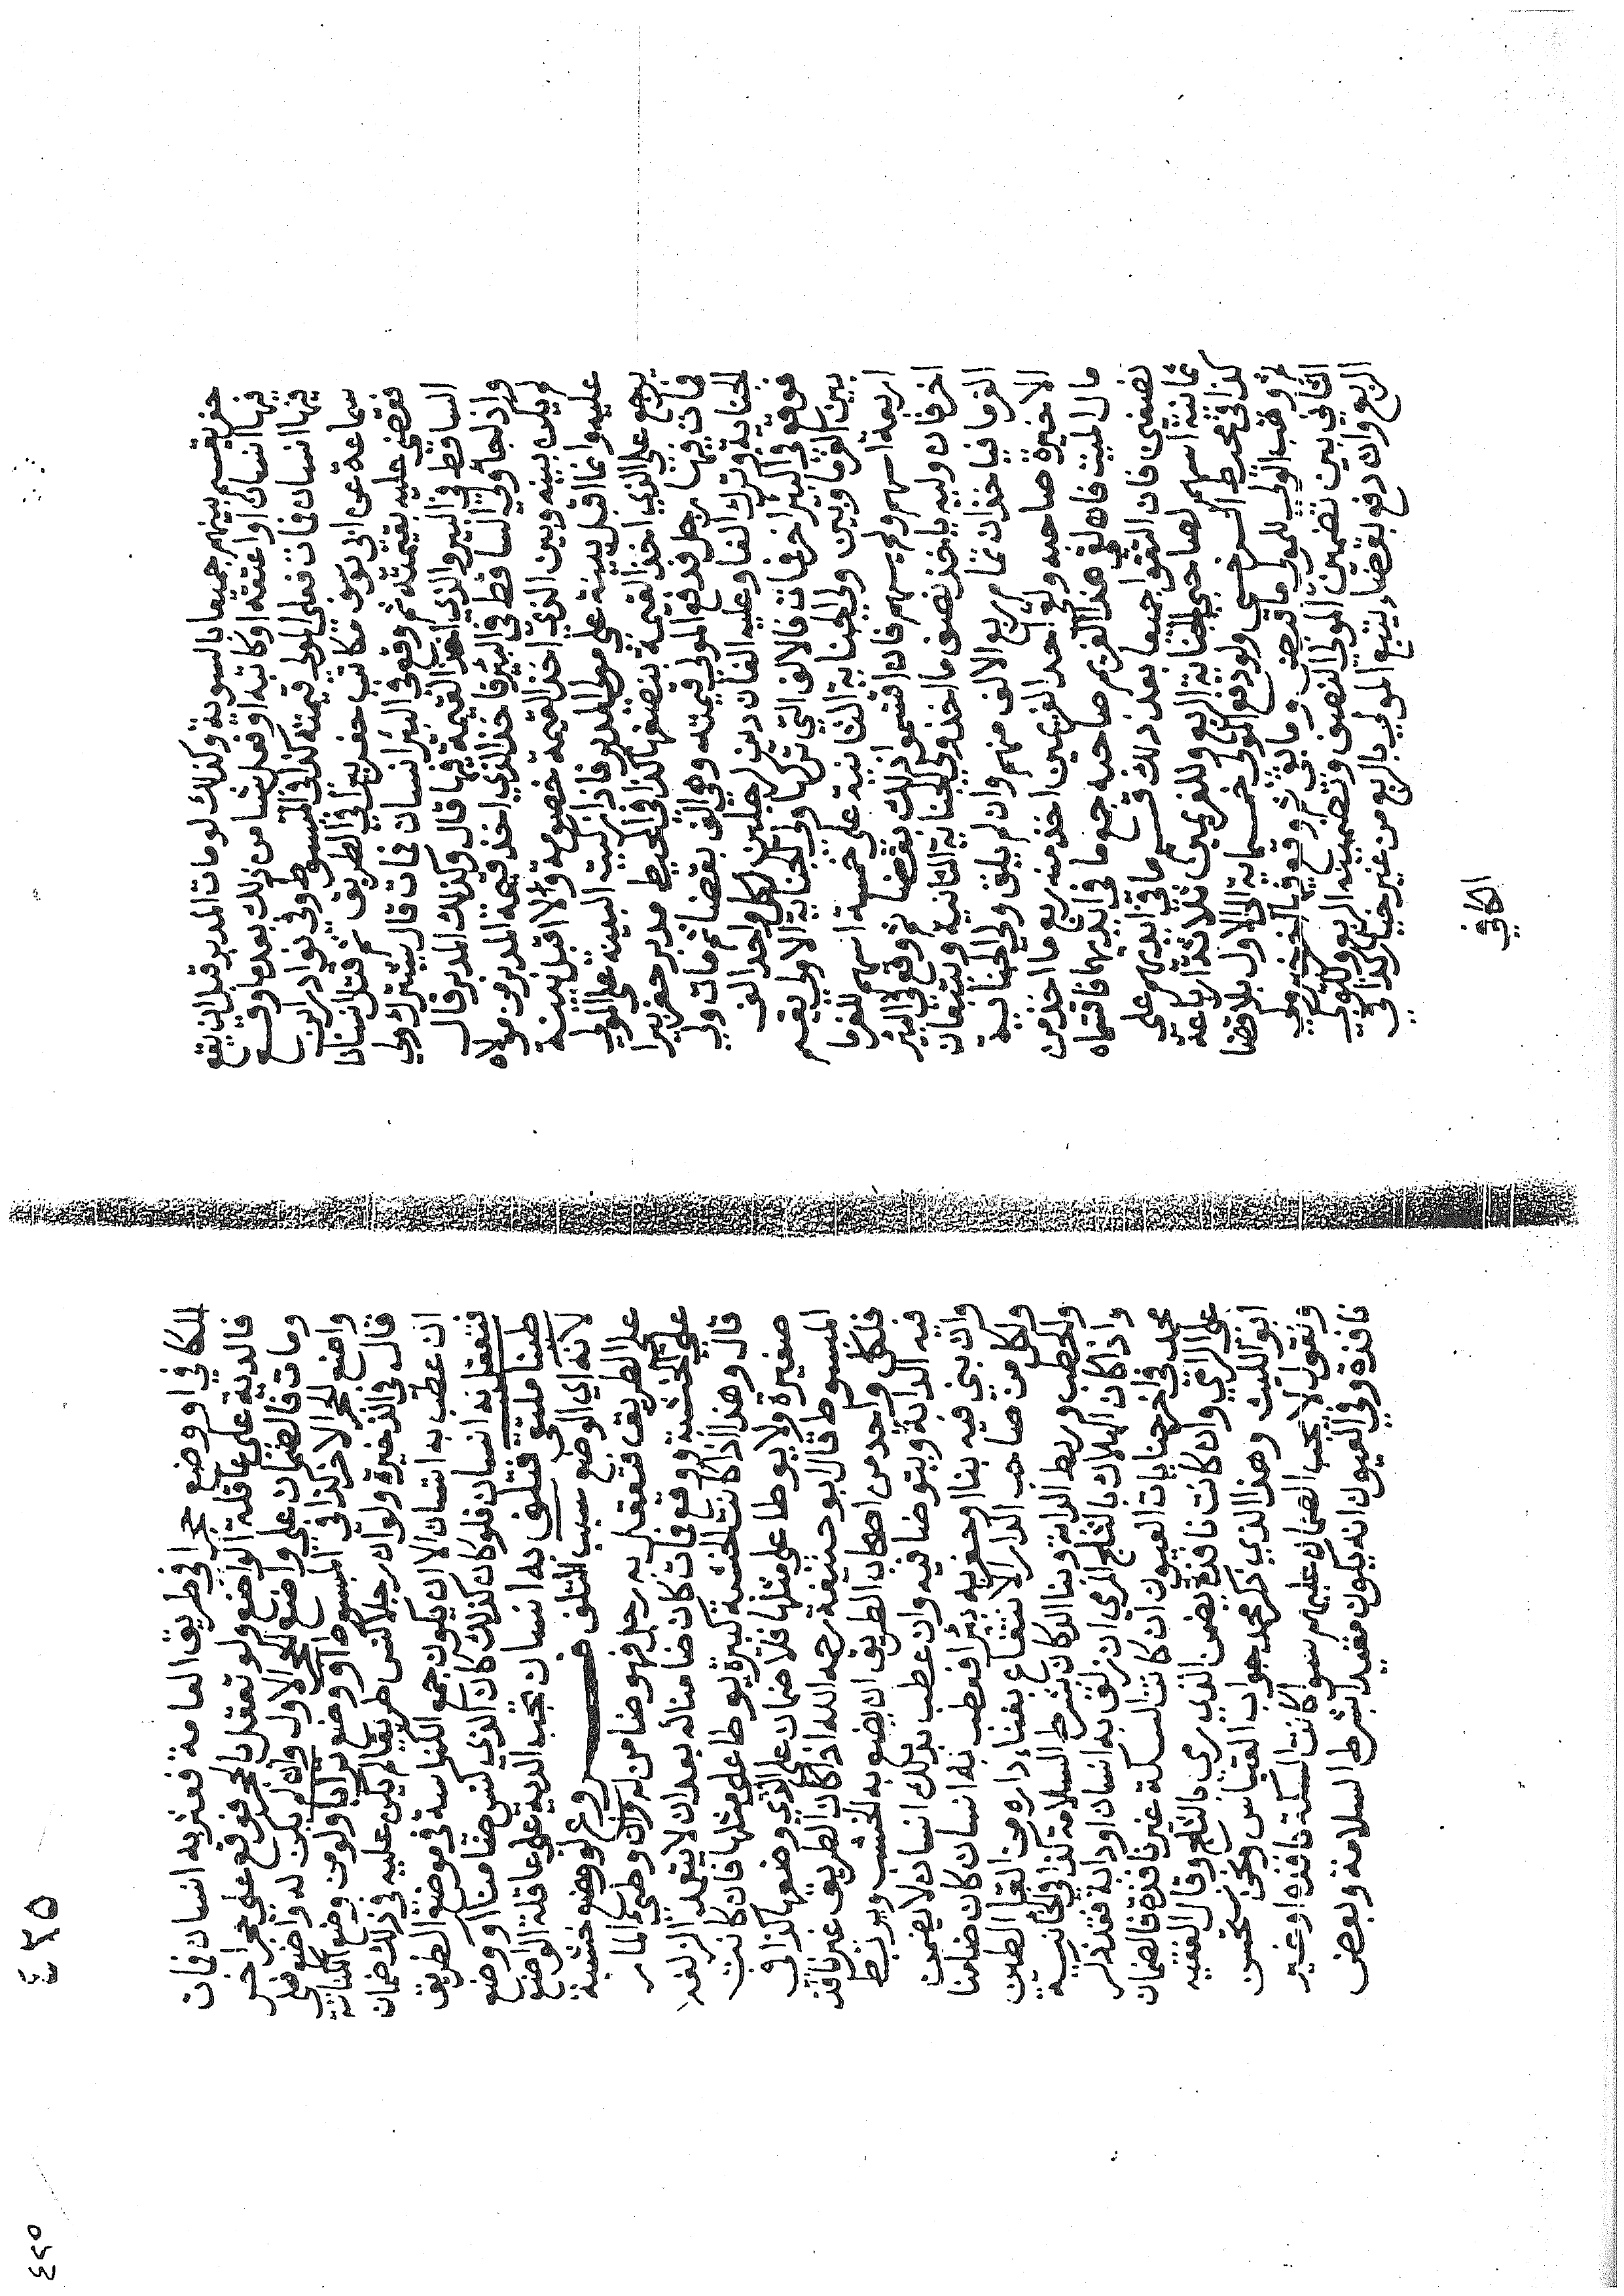 حفر يقسم بينهم جميعا بالسوية وكذلك لو مات المدبر قبل ان يقع
فيها انسان او اعتقه او كاتبه او فعل شيئا من ذلك بعدما وقع
فيها انسان فمات فعلى المولى قيمته كذا في المبسوط وفي نوادر ابن
سماعة عن ابي يوسف مكاتب حفر بيرا في الطريق ثم قتل انسانا
فقضى عليه بقيمته ثم وقع في البئر انسان فمات قال يشترك ولي
الساقط في البير والذي اخذ القيمة فيها قال وكذلك المدبر قال
واذا جاء ولي الساقط في البئر فاخذ الذي اخذ قيمة المدبر من مولاه
لم يكن بينه وبين الذي اخذ القيمة خصومة ولا اقبل بينته
عليه وانما اقبل بينته على مولى المدبر فاذا زكيت البينة على المولى
يرجع على الذي اخذ القيمة بنصفها كذا في المحيط مدبر حفر بيرا
فمات فيها رجل فدفع المولى قيمته وهي الف بقضا ثم مات ولي
الجناية وترك الفا وعليه الفان دين لرجلين لكل واحد الف
فوقع في البئر اخر فمات فالالف التي تركها ولي الجناية الاولى يقسم
بين الغرما وبين ولي الجناية الثانية على خمسة اسهم للغرما
اربعة اسهم وله سهم فان اقتسموا ذلك بقضا ثم وقع في البئر
اخر فمات وليه ياخذ نصف ما اخذ ولي الجناية الثانية ويتبعان
الغرما فياخذان تمام ربع الالف منهم وان لم يلق ولي الجناية
الاخيرة صاحبه ولقي احد الغريمين اخذ منه ربع ما اخذ من
مال الميت فان لقي هذا الغريم صاحبه جمع ما في ايديهما فاقتسماه
نصفين فان التقوا جميعا بعد ذلك قسم ما في ايديهم على
ثمانية اسهم لصاحبي الجناية الربع وللغريمين ثلاثة ارباعه
كذا في محيط السرخسي ولو دفع المولى خمسماية الى الاول بلا قضا
ثم وهب الولي للمولى ما قبض وما بقي ثم وقع فيها اخر خير ولي
الثاني بين تضمين المولى النصف وتضمينه الربع والولي
الربع وان دفع بقضاء يتبع المولى بالربع من غير خيار كذا في
الكافي
٤٢٥
٤٢٥
الكافي او وضع حجرا في طريق العامة فعثر به انسان فمات
فالدية على عاقلة الواضع ولو تعقل بالحجر فوقع على حجر اخر
ومات فالضمان على واضع الحجر الاول وان لم يكن له واضع فعلى
واضع الحجر الاخر كذا في المبسوط او وضع ترابا ولو من وضع الكناسة
قال في الذخيرة ولو ان رجلا كنس طريقا لم يكن عليه في ذلك ضمان
ان عطب به انسان الا ان يكون جمع الكناسة في موضع الطريق
فتعقل به انسان فلو كان كذلك كان الذي كنس ضامنا او وضع
طينا ملتو فتلف به انسان تجب الدية على عاقلة الواضع
لانه اي الوضع سبب التلف فروع لو وضع خشبة
على الطريق فتعقل به رجل فهو ضامن له وان وطئ المار
على الخشبة ووقع فمات كان ضامنا له بعد ان لا يتعمد الزلقه
قال وهذا اذا كانت الخشبة كبيرة يوطا على مثلها فان كانت
صغيرة ولا يوطا على مثلها فلا ضمان على الذي وضعها كذا في
المبسوط قال ابو حنيفة رحمه الله اذا كان الطريق غير نافذ
فلكل واحد من اصحاب الطريق ان يضع به الخشب ويربط
فيه الدابة ويتوضا فيه وان عطب بذلك انسان لا يضمن
وان بنى فيه بناا وحفر به بئرا فعطب به انسان كان ضامنا
ولكل من صاحب الدار الانتفاع بفناء داره من القا الطين
والحطب وربط الدابة وبنا الدكان بشرط السلامة كذا في الخانية
واذا كان الهلاك بالثلج المرمي ان زلق به انسان او دابة فقد ذكر
محمد في اخر جنايات العيون ان كانت السكة غير نافذة فالضمان
على الرامي وان كانت نافذة يضمن الذي رمى بالثلج وقال الفقيه
ابو الليث وهذا الذي ذكر محمد جواب القياس ونحن نستحسن
ونقول لا يجب الضمان عليهم سوا كانت السكة نافذة او غير
نافذة وفي العيون انه يكون مقيدا بشرط السلامة وبعض